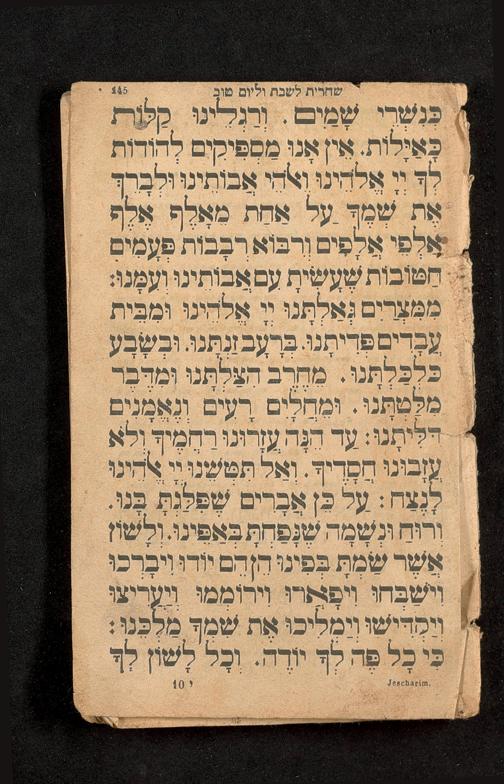 145 שחרית לשבת וליום טוב
כְּנִשְׁרֵי שָׁמַיִם. וְרַגְלֵינוּ קַלּוֹת
כָּאַיָּלוֹת. אֵין אָנוּ מַסְפִּיקִים לְהוֹדוֹת
לְךָ יְיָ אֱלֹהֵינוּ וֵאלֹהֵי אֲבוֹתֵינוּ וּלְבָרֵךְ
אֶת שְׁמֶךָ עַל אַחַת מֵאָלֶף אֶלֶף
אַלְפֵי אֲלָפִים וְרִבּוֹא רְבָבוֹת פְּעָמִים
הַטּוֹבוֹת שֶׁעָשִׂיתָ עִם אֲבוֹתֵינוּ וְעִמָּנוּ:
מִמִּצְרַיִם גְּאַלְתָּנוּ יְיָ אֱלֹהֵינוּ וּמִבֵּית
עֲבָדִים פְּדִיתָנוּ. בְּרָעָב זַנְתָּנוּ. וּבְשָׂבָע
כִּלְכַּלְתָּנוּ. מֵחֶרֶב הִצַּלְתָּנוּ וּמִדֶּבֶר
מִלַּטְתָּנוּ. וּמֵחֳלָיִם רָעִים וְנֶאֱמָנִים
דִּלִּיתָנוּ: עַד הֵנָּה עֲזָרוּנוּ רַחֲמֶיךָ וְלֹא
עֲזָבוּנוּ חֲסָדֶיךָ. וְאַל תִּטְּשֵׁנוּ יְיָ אֱלֹהֵינוּ
לָנֶצַח: עַל כֵּן אֵבָרִים שֶׁפִּלַּגְתָּ בָּנוּ.
וְרוּחַ וּנְשָׁמָה שֶׁנָּפַחְתָּ בְּאַפֵּינוּ. וְלָשׁוֹן
אֲשֶׁר שַׂמְתָּ בְּפִינוּ הֵן הֵם יוֹדוּ וִיבָרְכוּ
וִישַׁבְּחוּ וִיפָאֲרוּ וִירוֹמְמוּ וְיַעֲרִיצוּ
וְיַקְדִּישׁוּ וְיַמְלִיכוּ אֶת שִׁמְךָ מַלְכֵּנוּ:
כִּי כָל פֶּה לְךָ יוֹדֶה. וְכָל לָשׁוֹן לְךָ
10 י Jescharim.